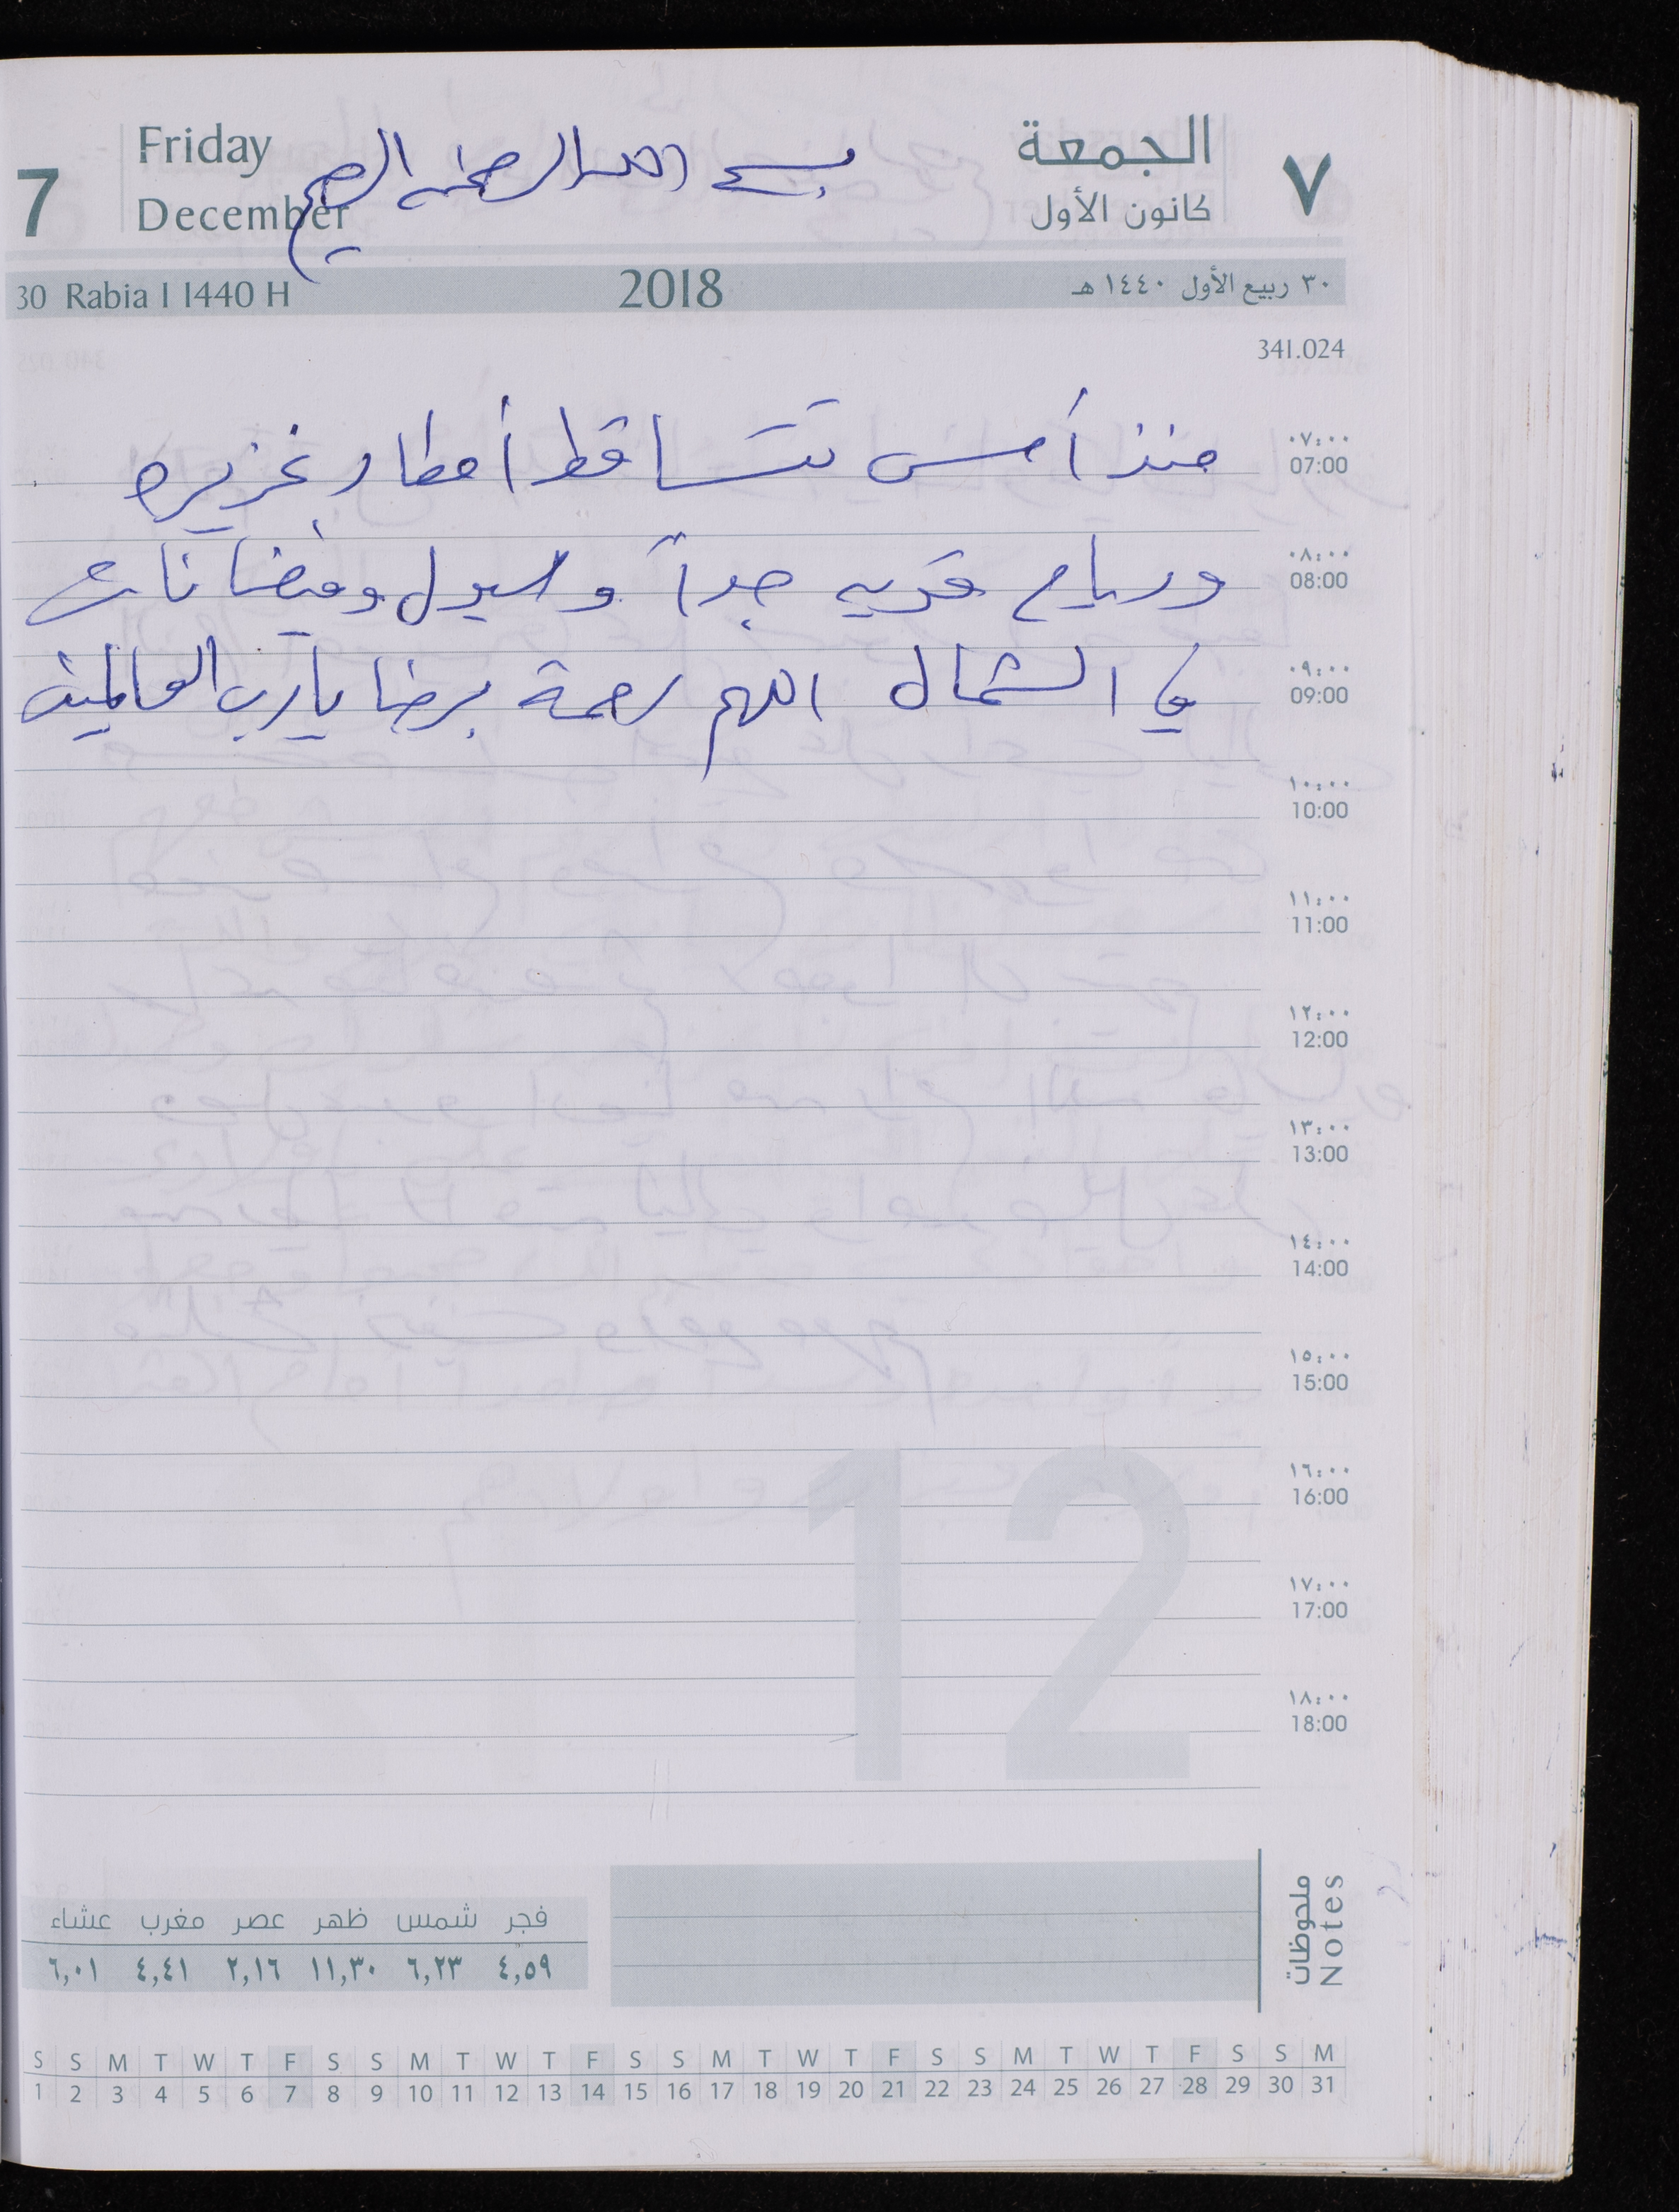 7 Friday الجمعة ٧
December كانون الأول
بسم الله الرحمن الرحيم
30 Rabia I 1440 H 2018 ٣٠ ربيع الأول ١٤٤٠ هـ
341.024
منذ أمس تتساقط أمطار غزيره
٠٧:٠٠
07:00
ورياح قويه جداً وسيول وفيضانات
٠٨:٠٠
08:00
في الشمال اللهم رحمة برضا يارب العالمين
٠٩:٠٠
09:00
١٠:٠٠
10:00
١١:٠٠
11:00
١٢:٠٠
12:00
١٣:٠٠
13:00
١٤:٠٠
14:00
١٥:٠٠
15:00
١٦:٠٠
16:00
١٧:٠٠
17:00
١٨:٠٠
18:00
12
ملحوظات
Notes
فجر شمس ظهر عصر مغرب عشاء
٤,٥٩ ٦,٢٣ ١١,٣٠ ٢,١٦ ٤,٤١ ٦,٠١
S S M T W T F S S M T W T F S S M T W T F S S M T W T F S S M
1 2 3 4 5 6 7 8 9 10 11 12 13 14 15 16 17 18 19 20 21 22 23 24 25 26 27 28 29 30 31